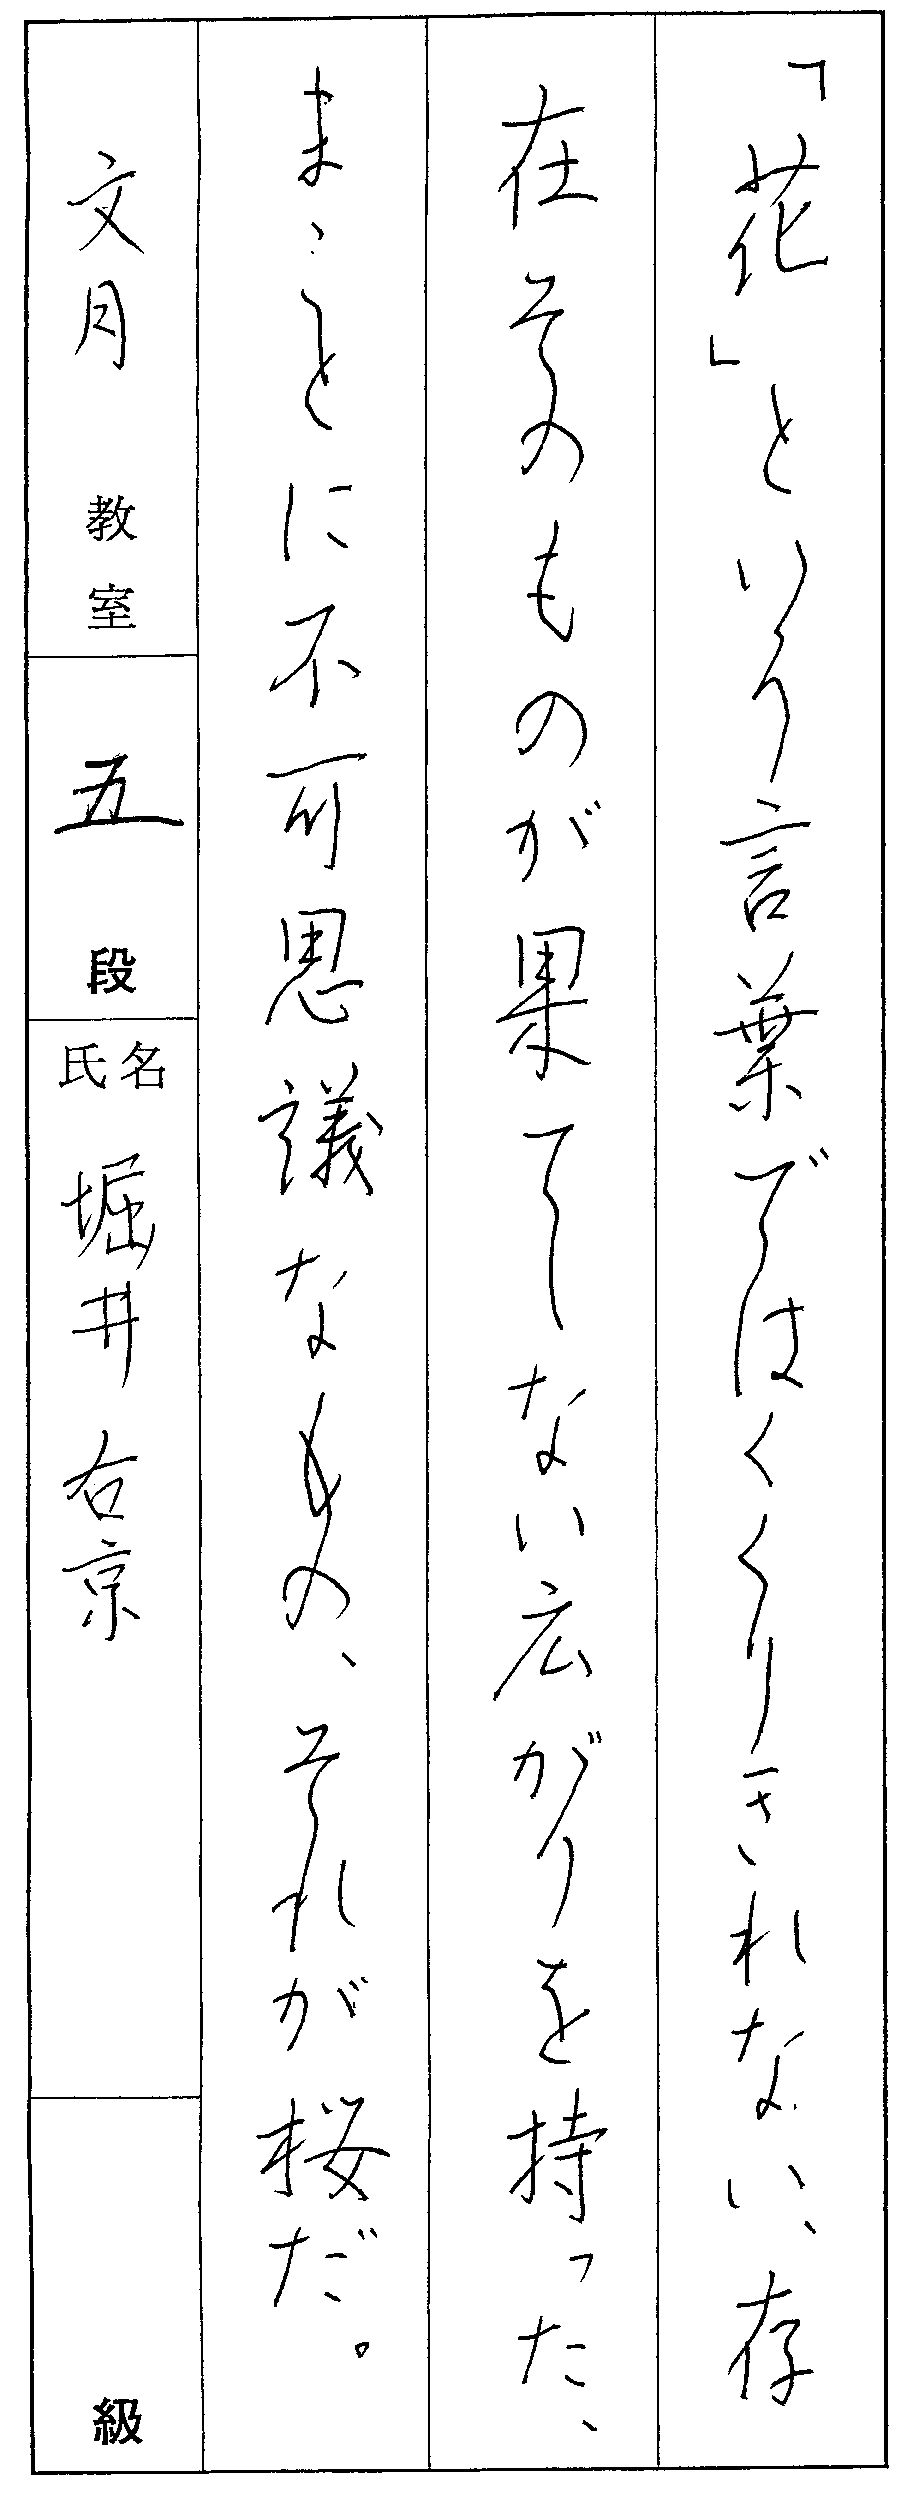 「花」という言葉ではくくりきれない、存
在そのものが果てしない広がりを持った、
まことに不可思議なもの、それが桜だ。
文月 教室
五 段
氏名 堀井 右京
級